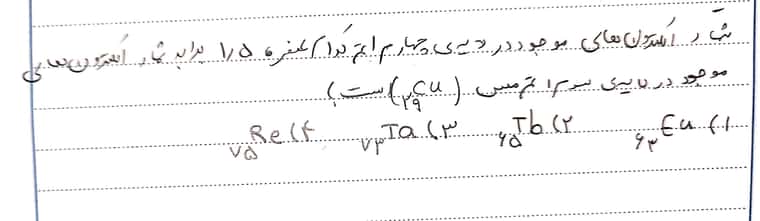 شمار الکترون‌های موجود در لایه‌ی چهارم اتم کدام عنصر ۱٫۵ برابر شمار الکترون‌های
موجود در لایه‌ی سوم اتم مس (₂₉Cu) است؟
۱) ₆₃Eu ۲) ₆₅Tb ۳) ₇₃Ta ۴) ₇₅Re